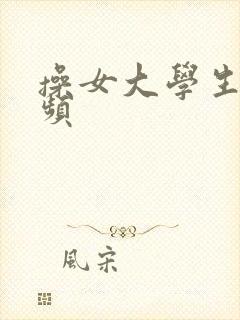 操女大學生
頻
風宋